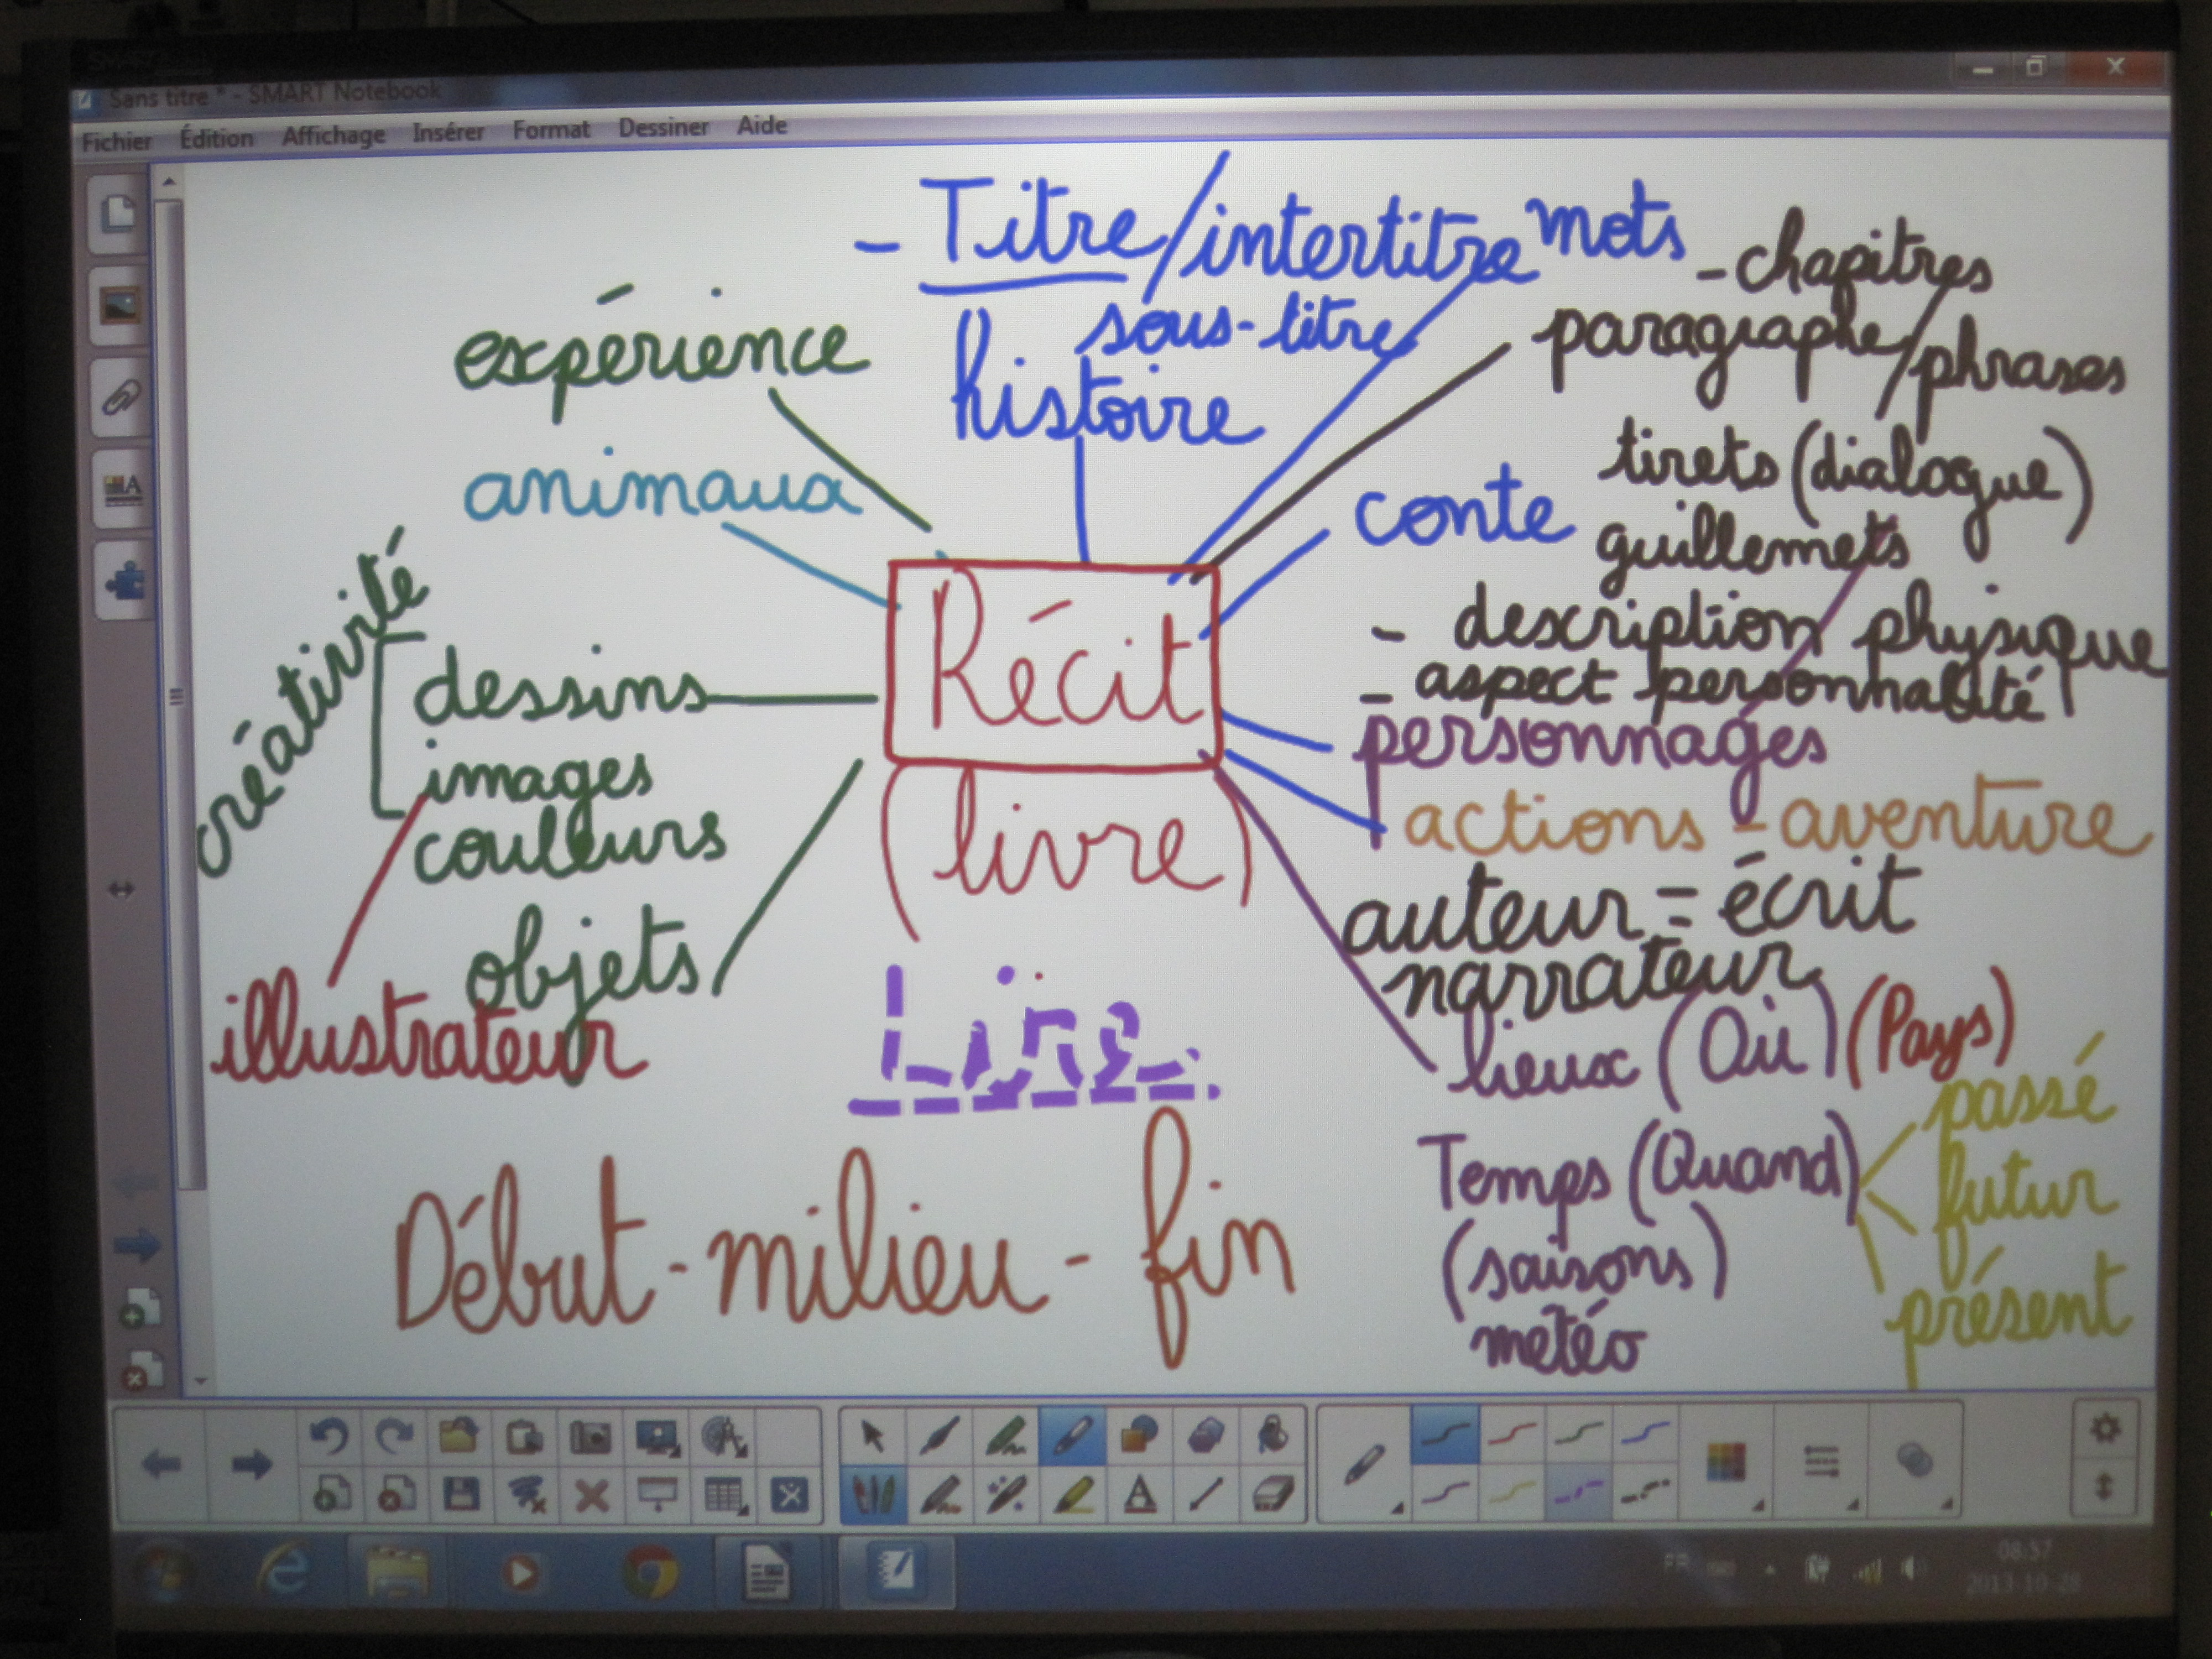 Sans titre * - SMART Notebook
Fichier Édition Affichage Insérer Format Dessiner Aide
- Titre/intertitre mots
sous-titre
histoire
- chapitres
paragraphe/phrases
tirets (dialogue)
guillemets
expérience
animaux
conte
créativité
dessins
images
couleurs
objets
illustrateur
Récit
(livre)
Lire
- description physique
- aspect personnalité
personnages
actions - aventure
auteur = écrit
narrateur
lieux (Où) (Pays)
Temps (Quand)
(saisons)
météo
passé
futur
présent
Début - milieu - fin
FR
08:57